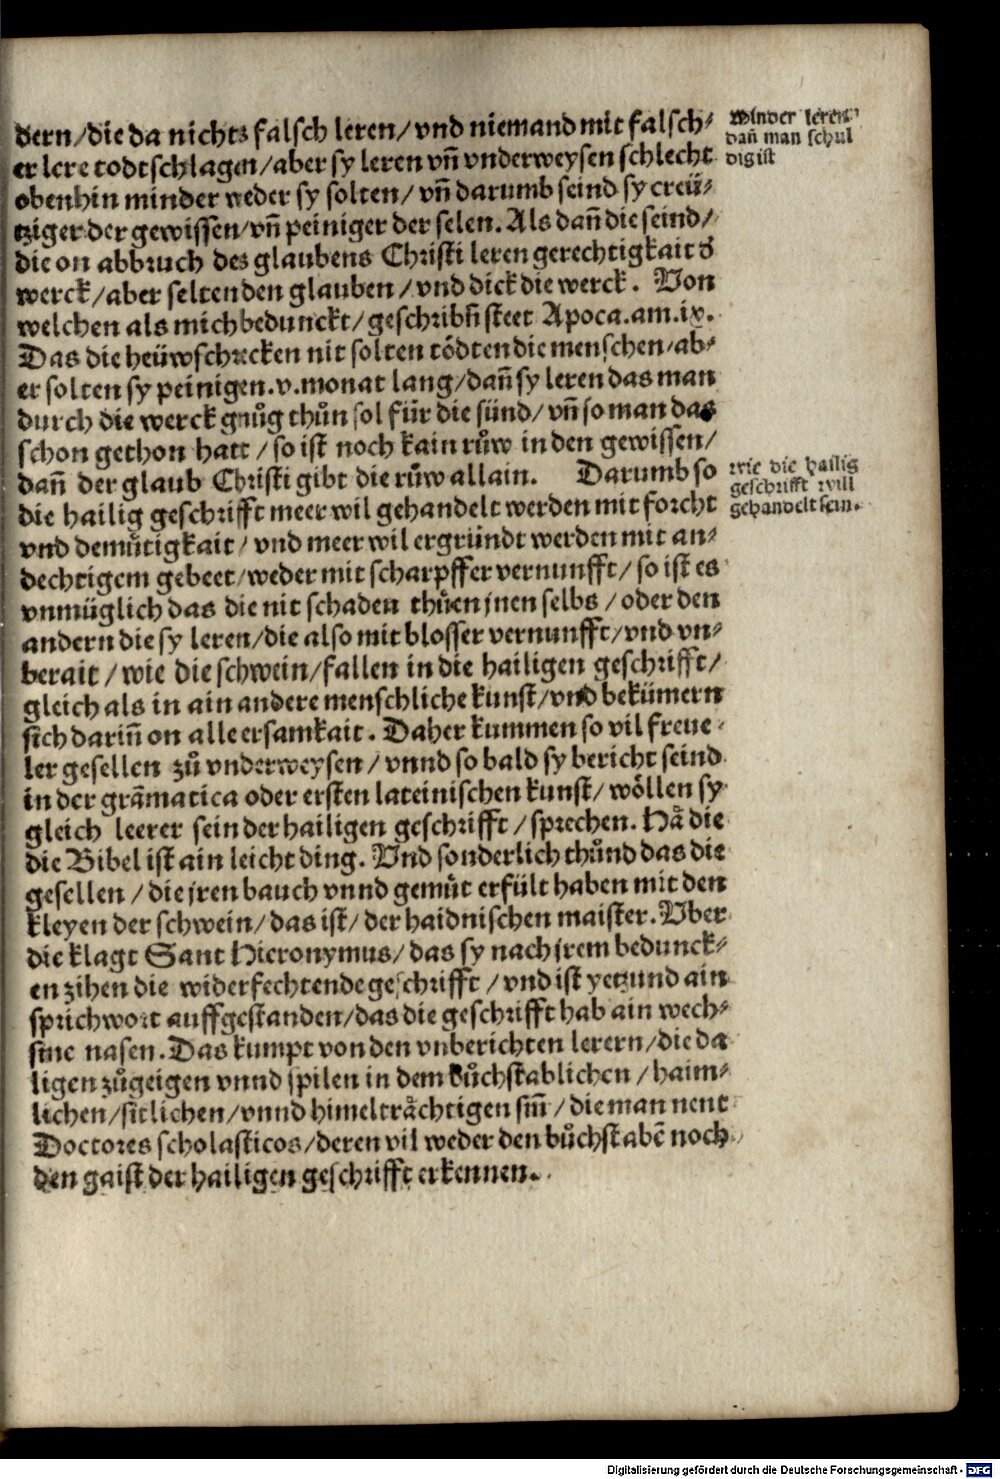 dern/die da nichts falsch leren/vnd niemand mit falsch⸗
er lere todtschlagen/aber sy leren vn̄ vnderweysen schlecht
obenhin minder weder sy solten/vn̄ darumb seind sy creü⸗
tziger der gewissen/vn̄ peiniger der selen. Als dan̄ die seind/
die on abbruch des glaubens Christi leren gerechtigkait d̄
werck/aber selten den glauben/vnd dick die werck. Von
welchen als mich bedunckt/geschribn̄ steet Apoca.am.ix.
Das die heüwschrecken nit solten tödten die menschen/ab⸗
er solten sy peinigen.v.monat lang/dan̄ sy leren das man
durch die werck gnůg thůn sol für die sünd/vn̄ so man das
schon gethon hatt/so ist noch kain růw in den gewissen/
dan̄ der glaub Christi gibt die růw allain. Darumb so
die hailig geschrifft meer wil gehandelt werden mit forcht
vnd demůtigkait/vnd meer wil ergründt werden mit an⸗
dechtigem gebeet/weder mit scharpffer vernunfft/so ist es
vnmüglich das die nit schaden thüen jnen selbs/oder den
andern die sy leren/die also mit blosser vernunfft/vnd vn⸗
berait/wie die schwein/fallen in die hailigen geschrifft/
gleich als in ain andere menschliche kunst/vnd bekümern
sich darin̄ on alle ersamkait. Daher kummen so vil freue⸗
ler gesellen zů vnderweysen/vnnd so bald sy bericht seind
in der grāmatica oder ersten lateinischen kunst/wöllen sy
gleich leerer sein der hailigen geschrifft/sprechen. Hā die
die Bibel ist ain leicht ding. Vnd sonderlich thůnd das die
gesellen/die jren bauch vnnd gemůt erfült haben mit den
kleyen der schwein/das ist/der haidnischen maister. Vber
die klagt Sant Hieronymus/das sy nach jrem bedunck⸗
en zihen die widerfechtende geschrifft/vnd ist yetzund ain
sprichwort auffgestanden/das die geschrifft hab ain wech⸗
sine nasen. Das kumpt von den vnberichten lerern/die da
ligen zůgeigen vnnd spilen in dem bůchstablichen/haim⸗
lichen/sitlichen/vnnd himelträchtigen sin̄/die man nent
Doctores scholasticos/deren vil weder den bůchstabē noch
den gaist der hailigen geschrifft erkennen.
Minder leren
dan̄ man schul
dig ist
wie die hailig
geschrifft will
gehandelt sein.
Digitalisierung gefördert durch die Deutsche Forschungsgemeinschaft - DFG